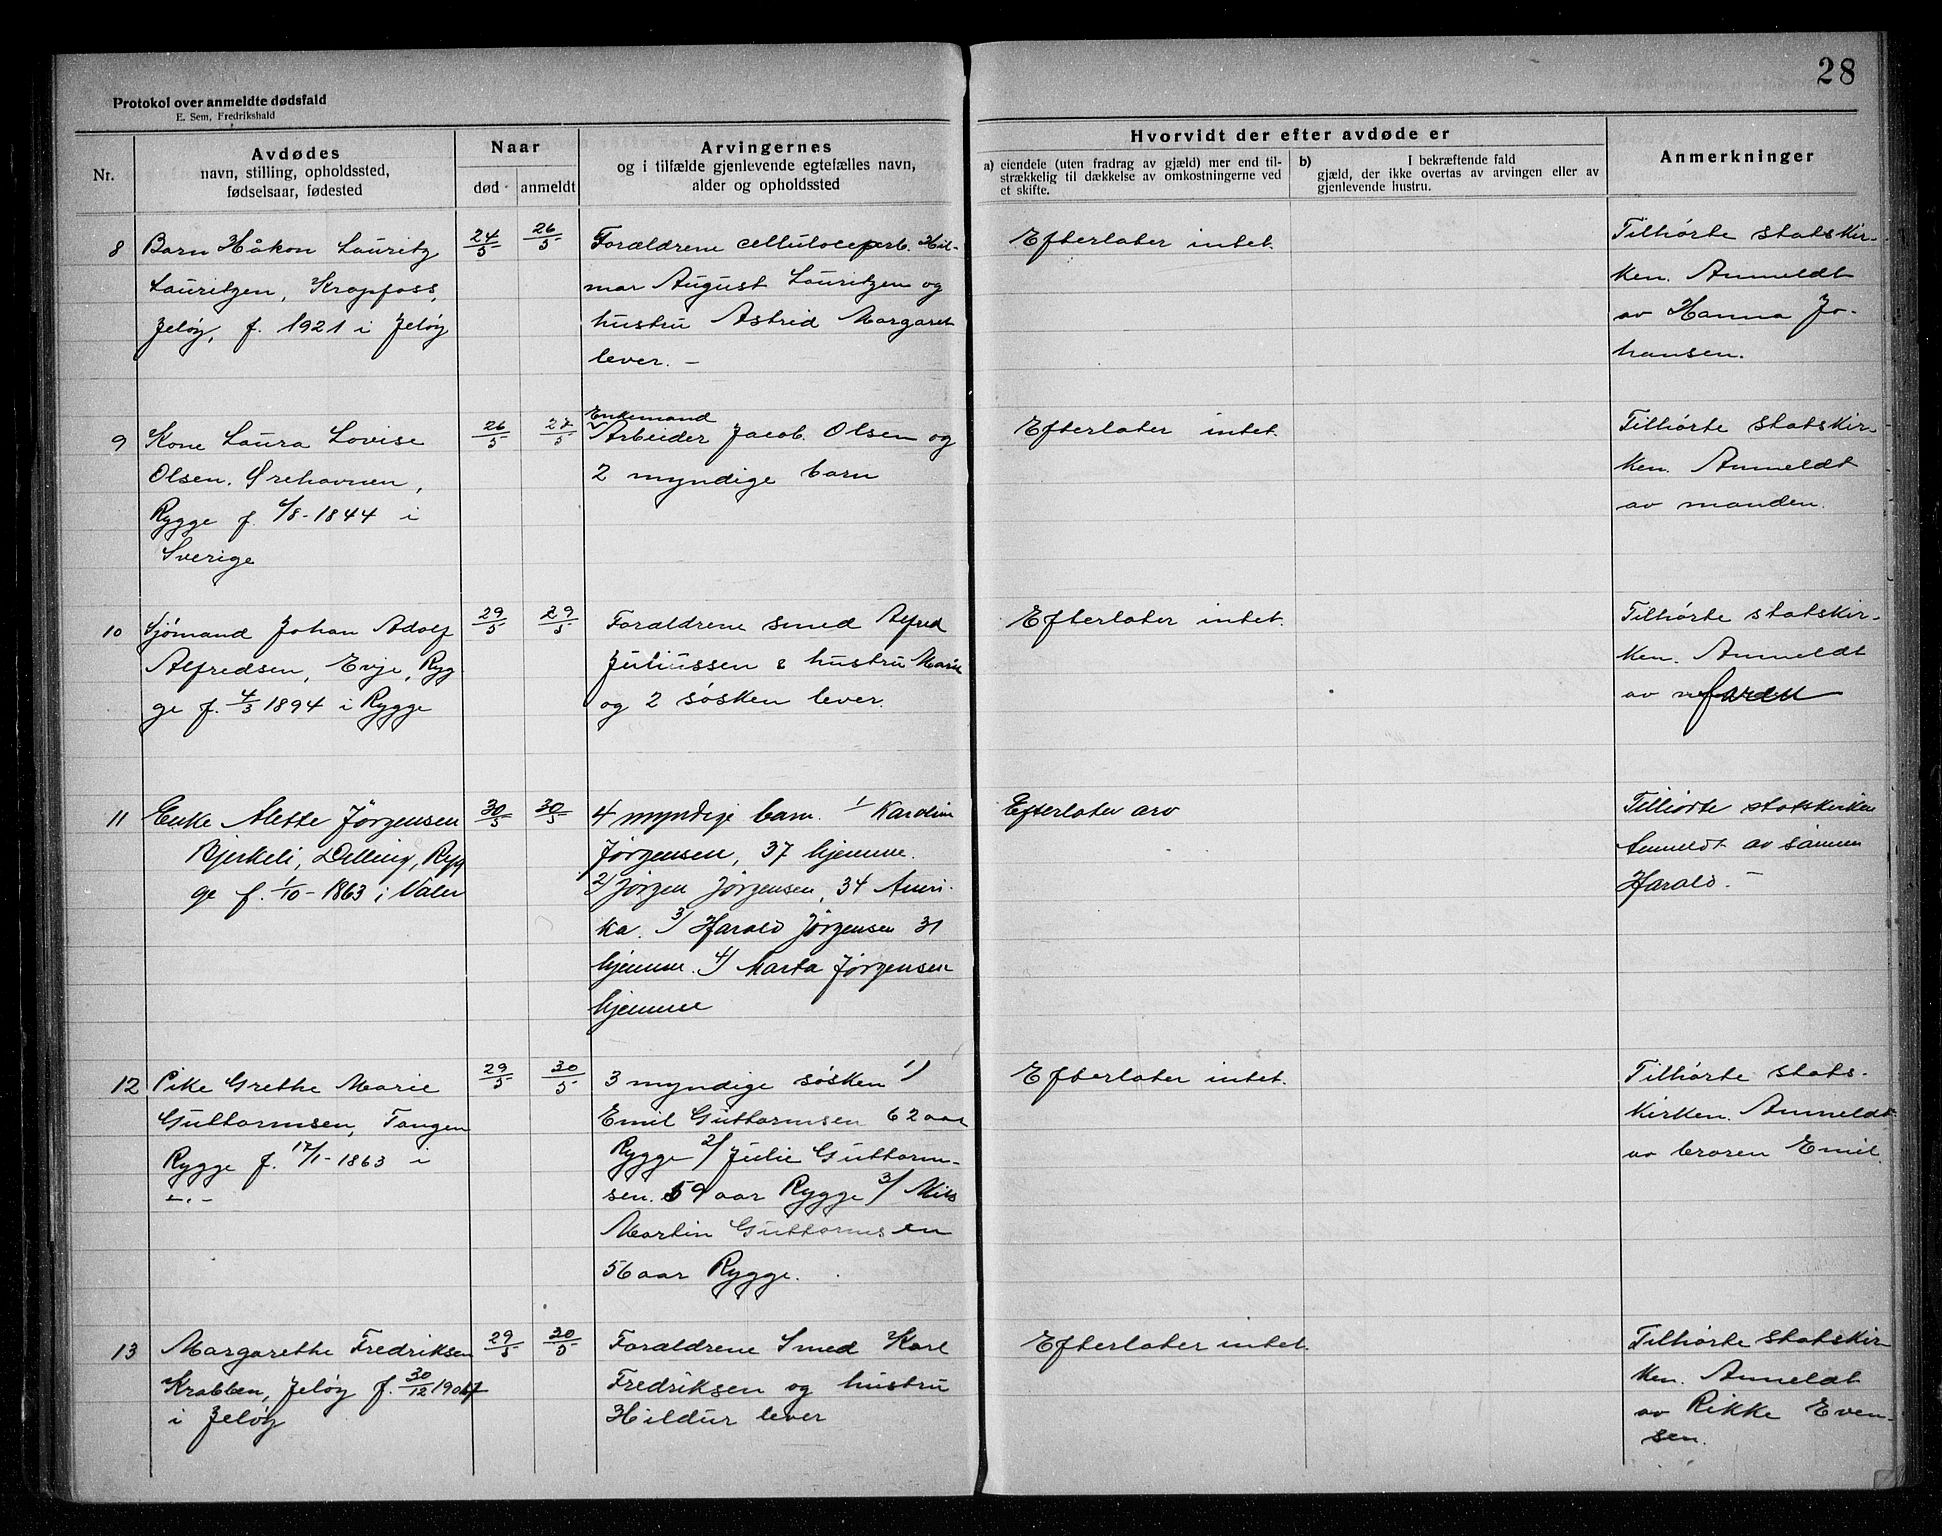 28
Protokol over anmeldte dødsfald
E. Sem, Fredrikshald
Nr.
Avdødes
navn, stilling, opholdssted,
fødselsaar, fødested
Naar
død
anmeldt
Arvingernes
og i tilfælde gjenlevende egtefælles navn,
alder og opholdssted
Hvorvidt der efter avdøde er
a) eiendele (uten fradrag av gjæld) mer end til-
strækkelig til dækkelse av omkostningerne ved
et skifte.
b) I bekræftende fald
gjæld, der ikke overtas av arvingen eller av
gjenlevende hustru.
Anmerkninger
8
Barn Håkon Lauritz
Lauritzen, Krapfoss,
Jeløy, f. 1921 i Jeløy
24/5
26/5
Forældrene celluloseparb. Hil-
mar August Lauritzen og
hustru Astrid Margaret
lever. –
Efterlater intet.
Tilhørte statskir-
ken. Anmeldt
av Hanna Jo-
hansen.
9
Kone Laura Lovise
Olsen. Ørehavnen,
Rygge f. 6/8-1844 i
Sverige
26/5
27/5
Enkemand
Arbeider Jacob Olsen og
2 myndige barn
Efterlater intet.
Tilhørte statskir-
ken. Anmeldt
av manden.
10
Sjømand Johan Adolf
Alfredsen, Evje, Ryg
ge f. 4/3 1894 i Rygge
29/5
29/5
Forældrene smed Alfred
Juliussen & hustru Marie
og 2 søsken lever.
Efterlater intet.
Tilhørte statskir-
ken. Anmeldt
av faren
11
Enke Alette Jørgensen
Bjerkeli, Dilling, Ryg
ge f. 1/10-1863 i Våler
30/5
30/5
4 myndige barn. 1/ Karoline
Jørgensen, 37 hjemme.
2/ Jørgen Jørgensen, 34 Ameri-
ka. 3/ Harald Jørgensen 31
hjemme. 4/ Marta Jørgensen
hjemme
Efterlater arv
Tilhørte statskirken
Anmeldt av sønnen
Harald. –
12
Pike Grethe Marie
Guttormsen, Tangen
Rygge f. 17/1-1863 i
–.–
29/5
30/5
3 myndige søsken 1/
Emil Guttormsen 62 aar
Rygge 2/ Julie Guttorm-
sen. 59 aar Rygge 3/ Nils
Martin Guttormsen
56 aar Rygge.
Efterlater intet.
Tilhørte stats-
kirken. Anmeldt
av broren Emil.
13
Margarethe Fredriksen
Krabben, Jeløy f. 30/12 190
i Jeløy
29/5
30/5
Forældrene Smed Karl
Fredriksen og hustru
Hildur lever
Efterlater intet.
Tilhørte statskir
ken. Anmeldt
av Rikke Even-
sen.